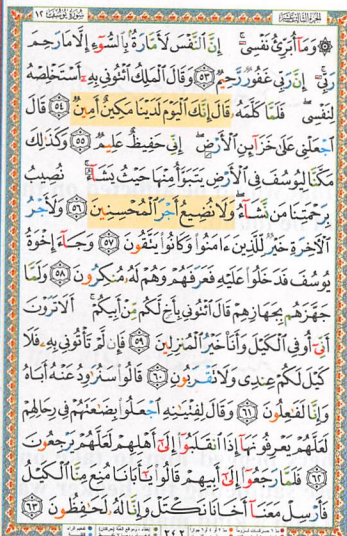 سُورَةُ يُوسُفَ ١٢
۞ وَمَآ أُبَرِّئُ نَفۡسِيٓۚ إِنَّ ٱلنَّفۡسَ لَأَمَّارَةُۢ بِٱلسُّوٓءِ إِلَّا مَا رَحِمَ
رَبِّيٓۚ إِنَّ رَبِّي غَفُورٞ رَّحِيمٞ ٥٣ وَقَالَ ٱلۡمَلِكُ ٱئۡتُونِي بِهِۦٓ أَسۡتَخۡلِصۡهُ
لِنَفۡسِيۖ فَلَمَّا كَلَّمَهُۥ قَالَ إِنَّكَ ٱلۡيَوۡمَ لَدَيۡنَا مَكِينٌ أَمِينٞ ٥٤ قَالَ
ٱجۡعَلۡنِي عَلَىٰ خَزَآئِنِ ٱلۡأَرۡضِۖ إِنِّي حَفِيظٌ عَلِيمٞ ٥٥ وَكَذَٰلِكَ
مَكَّنَّا لِيُوسُفَ فِي ٱلۡأَرۡضِ يَتَبَوَّأُ مِنۡهَا حَيۡثُ يَشَآءُۚ نُصِيبُ
بِرَحۡمَتِنَا مَن نَّشَآءُۖ وَلَا نُضِيعُ أَجۡرَ ٱلۡمُحۡسِنِينَ ٥٦ وَلَأَجۡرُ
ٱلۡأٓخِرَةِ خَيۡرٞ لِّلَّذِينَ ءَامَنُواْ وَكَانُواْ يَتَّقُونَ ٥٧ وَجَآءَ إِخۡوَةُ
يُوسُفَ فَدَخَلُواْ عَلَيۡهِ فَعَرَفَهُمۡ وَهُمۡ لَهُۥ مُنكِرُونَ ٥٨ وَلَمَّا
جَهَّزَهُم بِجَهَازِهِمۡ قَالَ ٱئۡتُونِي بِأَخٖ لَّكُم مِّنۡ أَبِيكُمۡۚ أَلَا تَرَوۡنَ
أَنِّيٓ أُوفِي ٱلۡكَيۡلَ وَأَنَا۠ خَيۡرُ ٱلۡمُنزِلِينَ ٥٩ فَإِن لَّمۡ تَأۡتُونِي بِهِۦ فَلَا
كَيۡلَ لَكُمۡ عِندِي وَلَا تَقۡرَبُونِ ٦٠ قَالُواْ سَنُرَٰوِدُ عَنۡهُ أَبَاهُ
وَإِنَّا لَفَٰعِلُونَ ٦١ وَقَالَ لِفِتۡيَٰنِهِ ٱجۡعَلُواْ بِضَٰعَتَهُمۡ فِي رِحَالِهِمۡ
لَعَلَّهُمۡ يَعۡرِفُونَهَآ إِذَا ٱنقَلَبُوٓاْ إِلَىٰٓ أَهۡلِهِمۡ لَعَلَّهُمۡ يَرۡجِعُونَ
٦٢ فَلَمَّا رَجَعُوٓاْ إِلَىٰٓ أَبِيهِمۡ قَالُواْ يَٰٓأَبَانَا مُنِعَ مِنَّا ٱلۡكَيۡلُ
فَأَرۡسِلۡ مَعَنَآ أَخَانَا نَكۡتَلۡ وَإِنَّا لَهُۥ لَحَٰفِظُونَ ٦٣
٢٤٢